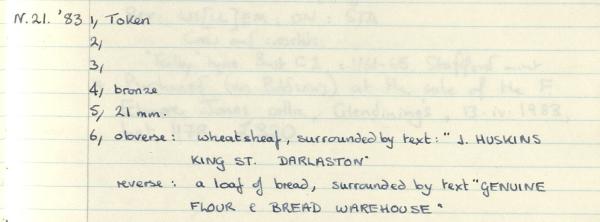 N.21. '83 1, Token
2,
3,
4, bronze
5, 21 mm.
6, obverse : wheatsheaf, surrounded by text : " J. HUSKINS
KING ST. DARLASTON"
reverse : a loaf of bread, surrounded by text "GENUINE
FLOUR & BREAD WAREHOUSE"